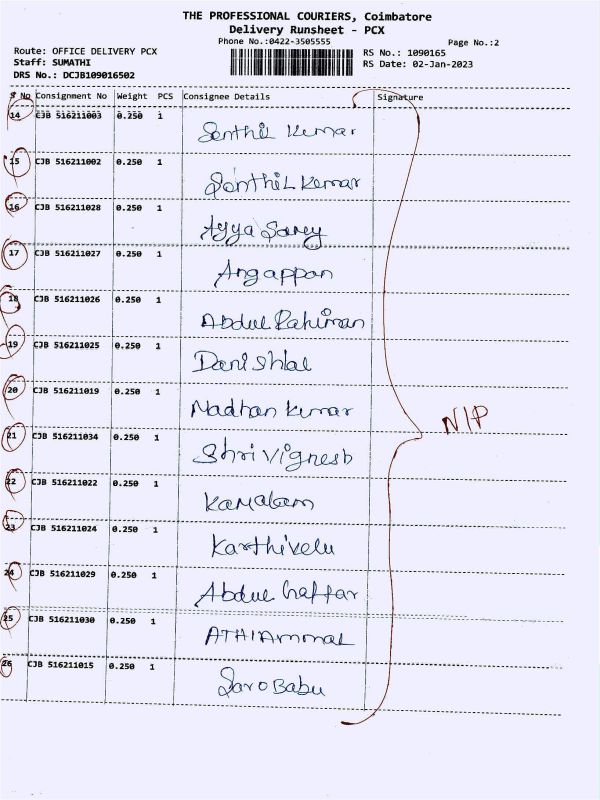 THE PROFESSIONAL COURIERS, Coimbatore
Delivery Runsheet - PCX
Phone No.:0422-3505555
Page No.:2
Route: OFFICE DELIVERY PCX
RS No.: 1090165
Staff: SUMATHI
RS Date: 02-Jan-2023
DRS No.: DCJB109016502
S No Consignment No Weight PCS Consignee Details Signature
14 CJB 516211003 0.250 1 Senthil Kumar
15 CJB 516211002 0.250 1 Senthil Kumar
16 CJB 516211028 0.250 1 Ayya Samy
17 CJB 516211027 0.250 1 Angappan
18 CJB 516211026 0.250 1 Abdul Rahiman
19 CJB 516211025 0.250 1 Danishlal
20 CJB 516211019 0.250 1 Madhan Kumar
N/P
21 CJB 516211034 0.250 1 Shri Vignesh
22 CJB 516211022 0.250 1 Kamalam
23 CJB 516211024 0.250 1 Karthivelu
24 CJB 516211029 0.250 1 Abdul Gaffar
25 CJB 516211030 0.250 1 ATHIAmmal
26 CJB 516211015 0.250 1 Saro Babu